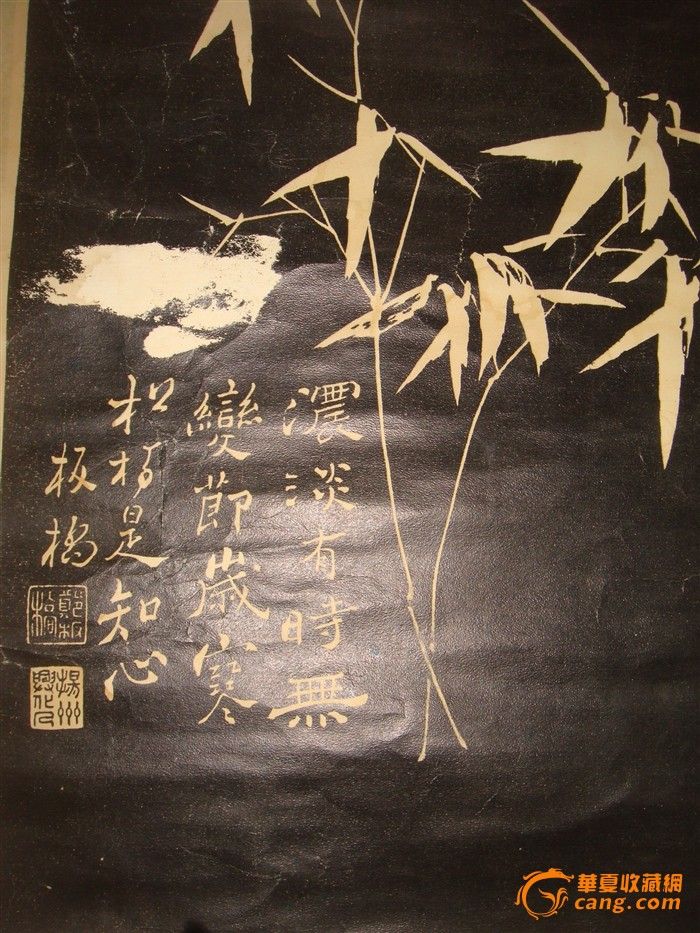 濃淡有時無
變節歲寒
松柏是知心
板橋
鄭板橋
揚州興化人
華夏收藏網
cang.com